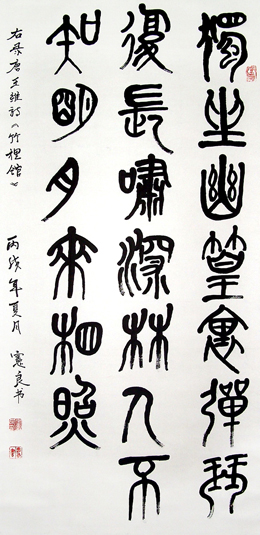 獨坐幽篁裏彈琴
復長嘯深林人不
知明月來相照
右录唐王维诗《竹裡馆》 丙戌年夏月 憲良书